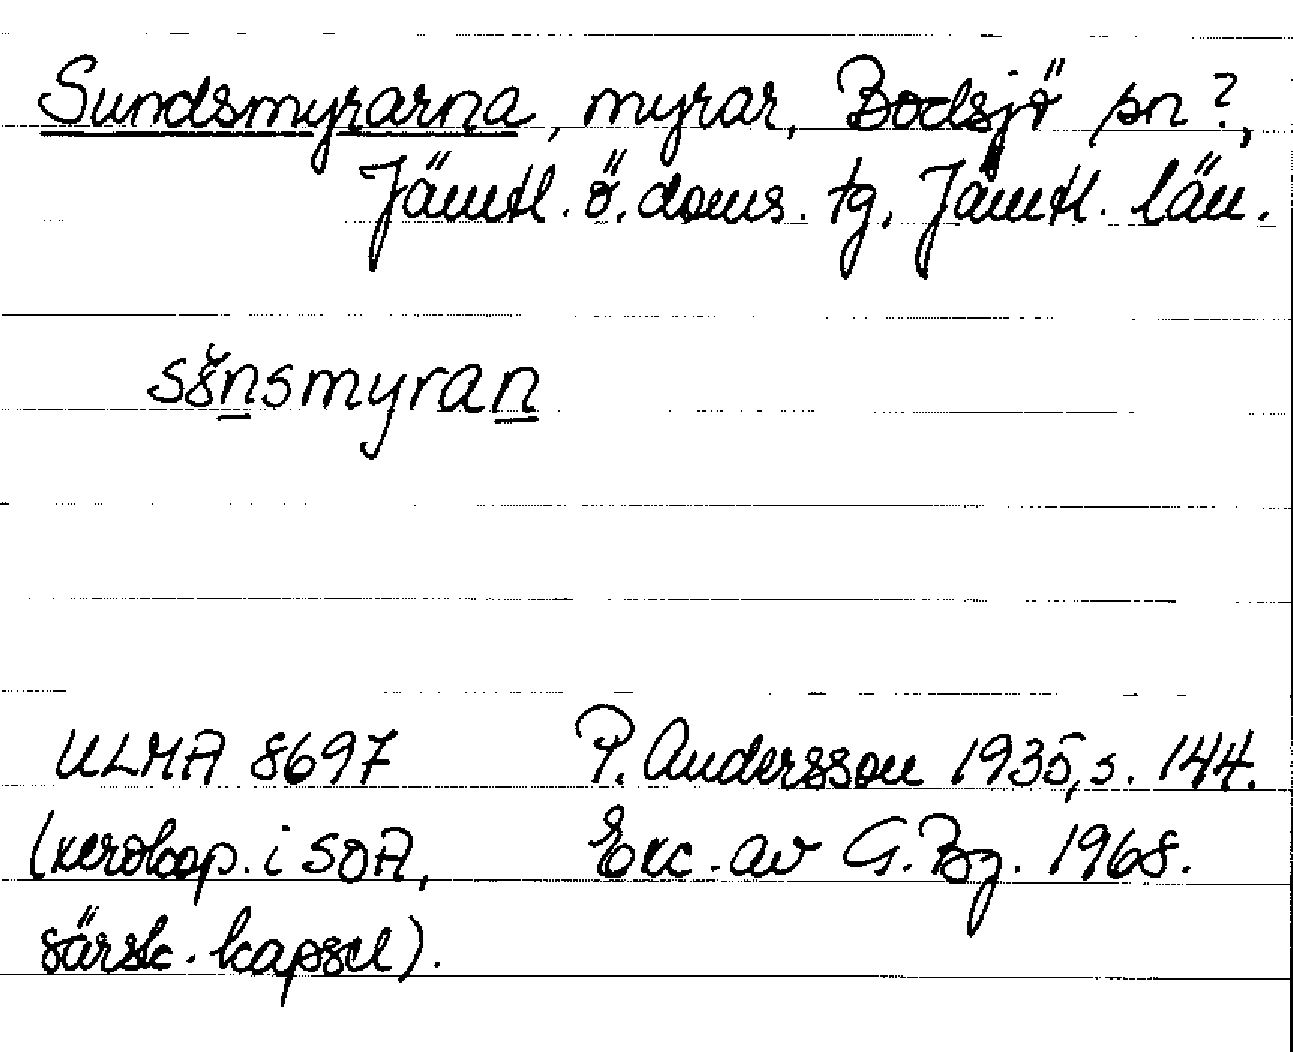 Sundsmyrarna, myrar, Bodsjö sn?,
Jämtl. ö. doms. tg, Jämtl. län.
s8̆n̲smyran̲
ULMA 8697 P. Andersson 1935, s. 144.
(xerokop. i SOA, Exc. av G. Bg. 1968.
särsk. kapsel).